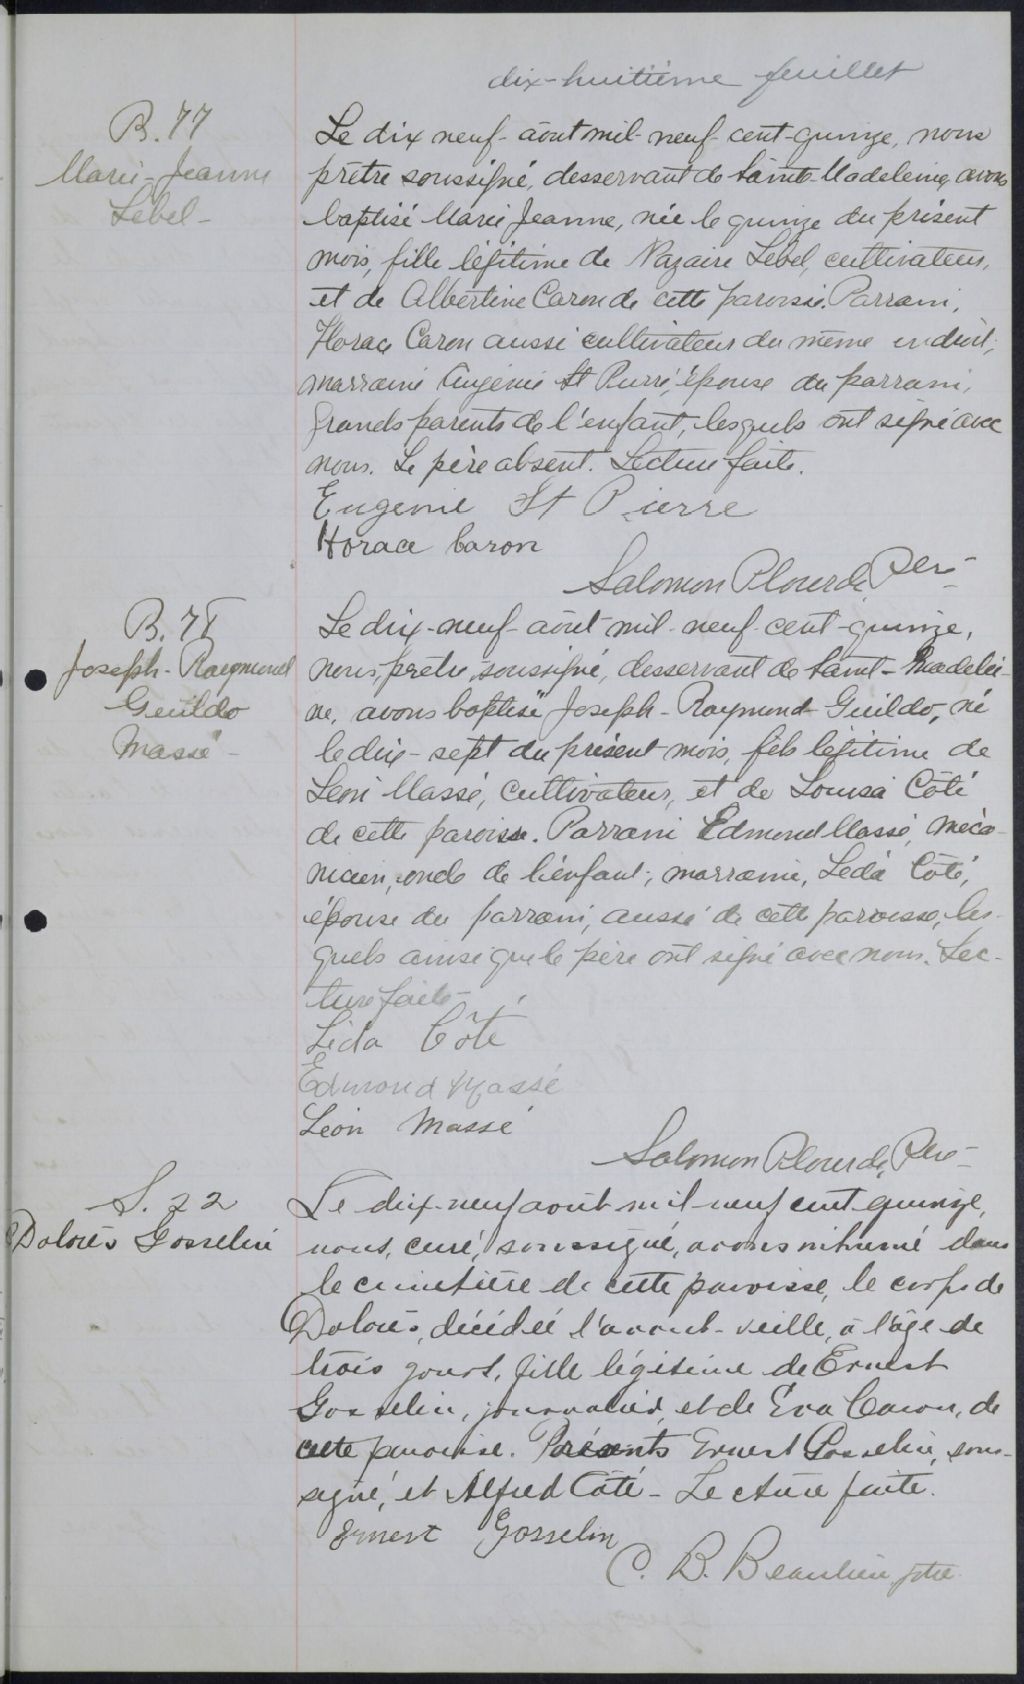 dix-huitième feuillet
B. 77
Marie-Jeanne
Lebel-
Le dix neuf-août mil-neuf-cent-quinze, nous
prêtre soussigné, desservant de Sainte-Madeleine, avons
baptisé Marie Jeanne, née le quinze du présent
mois, fille légitime de Nazaire Lebel, cultivateur,
et de Albertine Caron de cette paroisse. Parrain,
Horace Caron aussi cultivateur du même endroit;
marraine Eugénie St Pierre, épouse du parrain,
grands parents de l'enfant, lesquels ont signé avec
nous. Le père absent. Lecture faite.
Eugenie St Pierre
Horace Caron
Salomon Plourde, Ptre-
B. 78
Joseph-Raymond
Guildo
Massé-
Le dix-neuf-août-mil-neuf-cent-quinze,
nous, prêtre, soussigné, desservant de Saint-Madelei-
ne, avons baptisé Joseph-Raymond-Guildo, né
le dix-sept du présent mois, fils légitime de
Léon Massé, cultivateur, et de Louisa Côté
de cette paroisse. Parrain Edmond Massé, méca-
nicien, oncle de l'enfant; marraine, Léda Côté,
épouse du parrain, aussi de cette paroisse, les-
quels ainsi que le père ont signé avec nous. Lec-
ture faite-
Léda Côté
Edmond Massé
Léon Massé
Salomon Plourde, Ptre-
S. 22
Dolorès Gosselin
Le dix-neuf août mil neuf cent quinze,
nous, curé, soussigné, avons inhumé dans
le cimetière de cette paroisse, le corps de
Dolorès, décédée l'avant-veille, à l'âge de
trois jours, fille légitime de Ernest
Gosselin, journalier, et de Éva Caron, de
cette paroisse. Présents Ernest Gosselin, sous-
signé, et Alfred Côté- Lecture faite.
Ernest Gosselin
C. B. Beaulieu, ptre